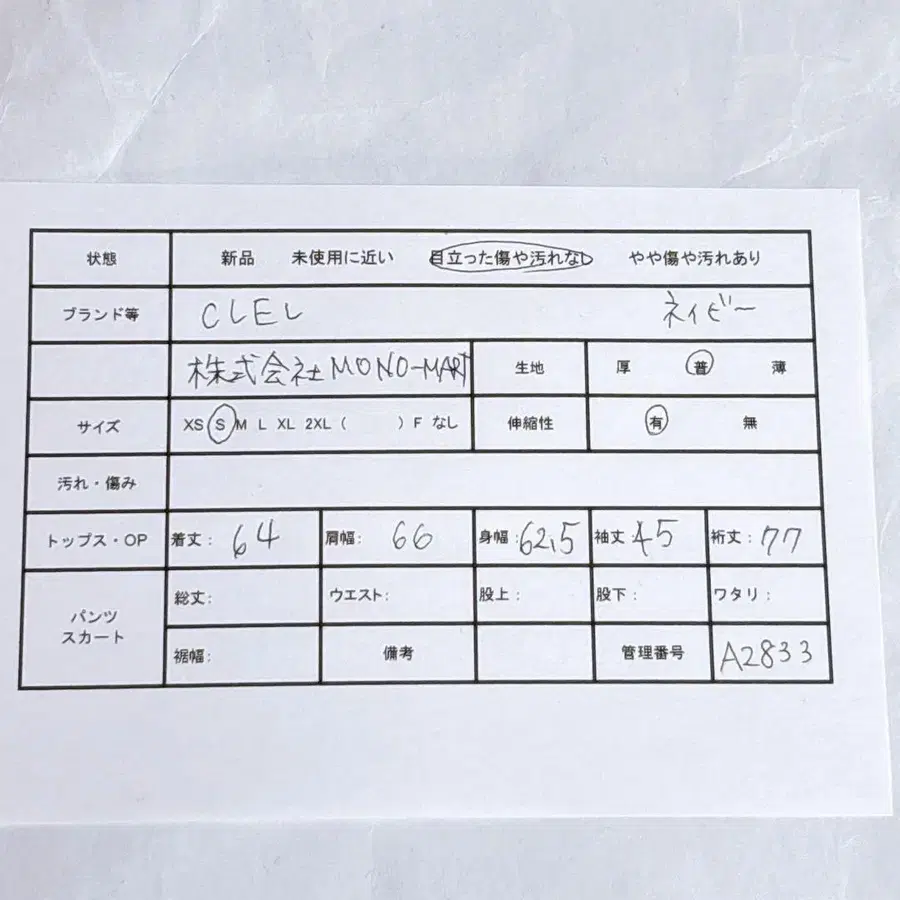 状態 新品 未使用に近い 目立った傷や汚れなし やや傷や汚れあり
ブランド等 CLEL ネイビー
株式会社MONO-MART 生地 厚 普 薄
サイズ XS S M L XL 2XL ( ) F なし 伸縮性 有 無
汚れ・傷み
トップス・OP 着丈: 64 肩幅: 66 身幅: 62.5 袖丈: 45 裄丈: 77
パンツ スカート 総丈: ウエスト: 股上: 股下: ワタリ:
裾幅: 備考 管理番号 A2833